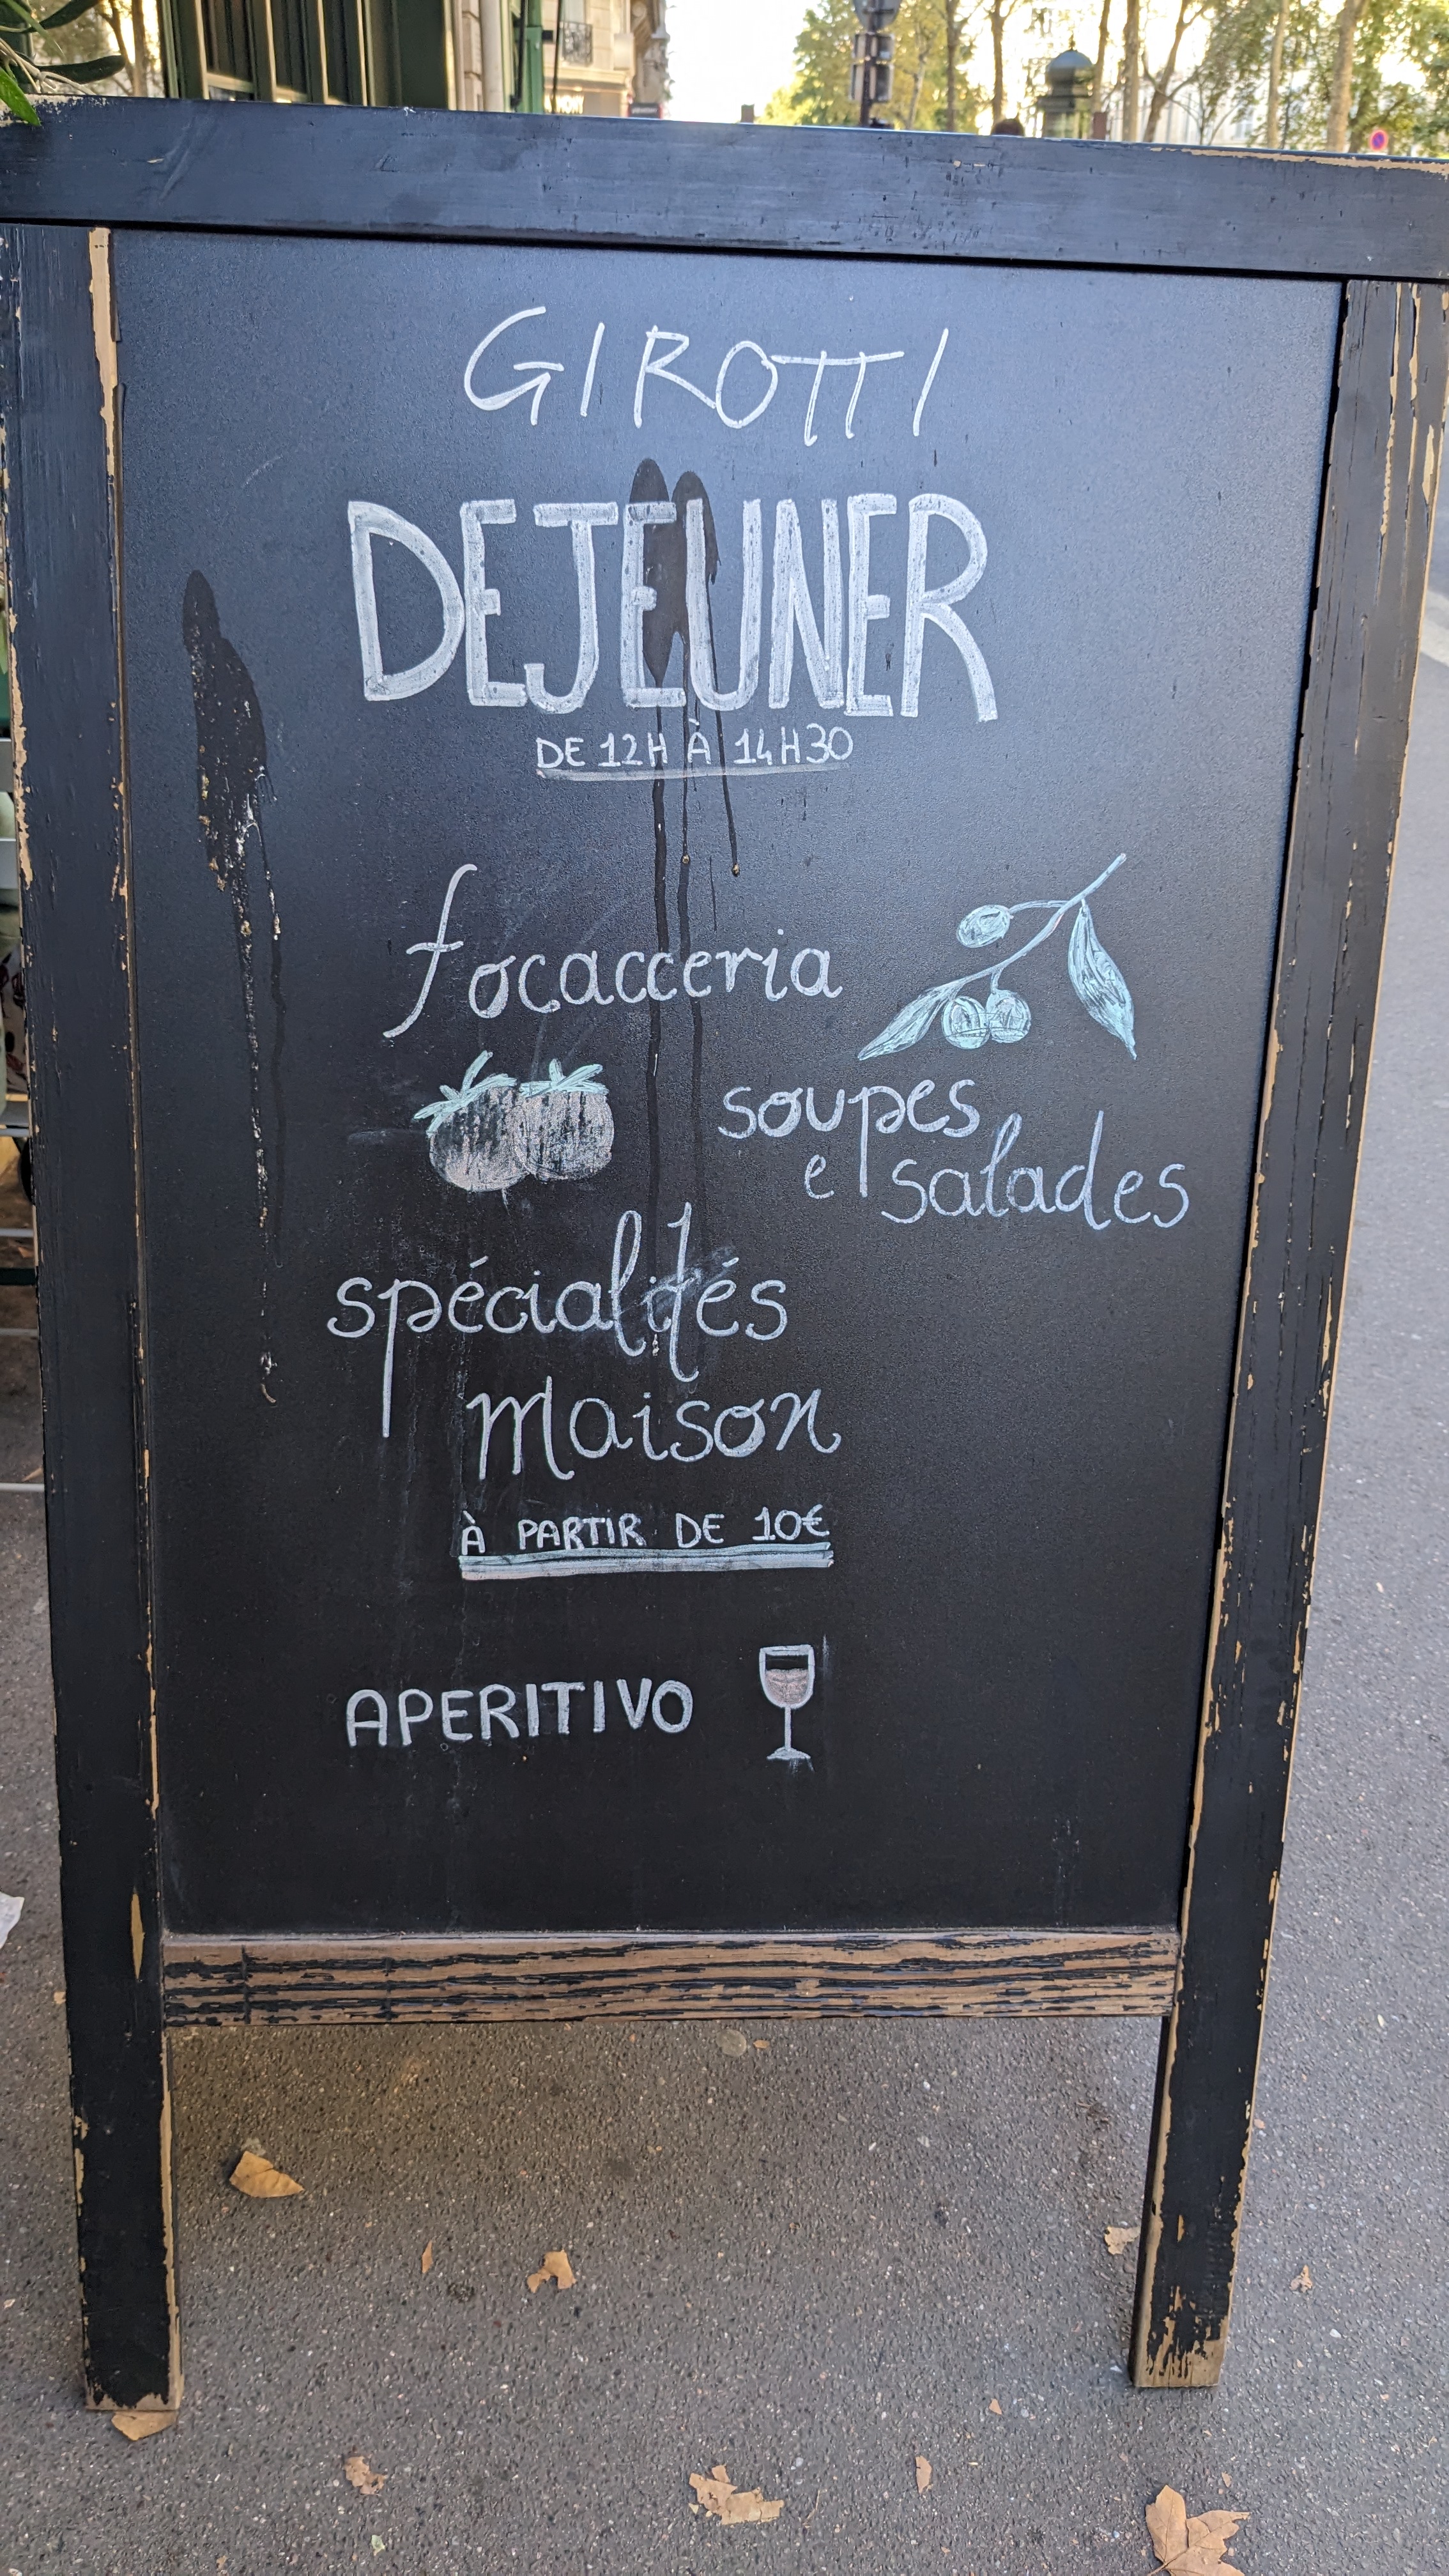 GIROTTI
DEJEUNER
DE 12H À 14H30
focacceria
soupes
e salades
spécialités
maison
À PARTIR DE 10€
APERITIVO